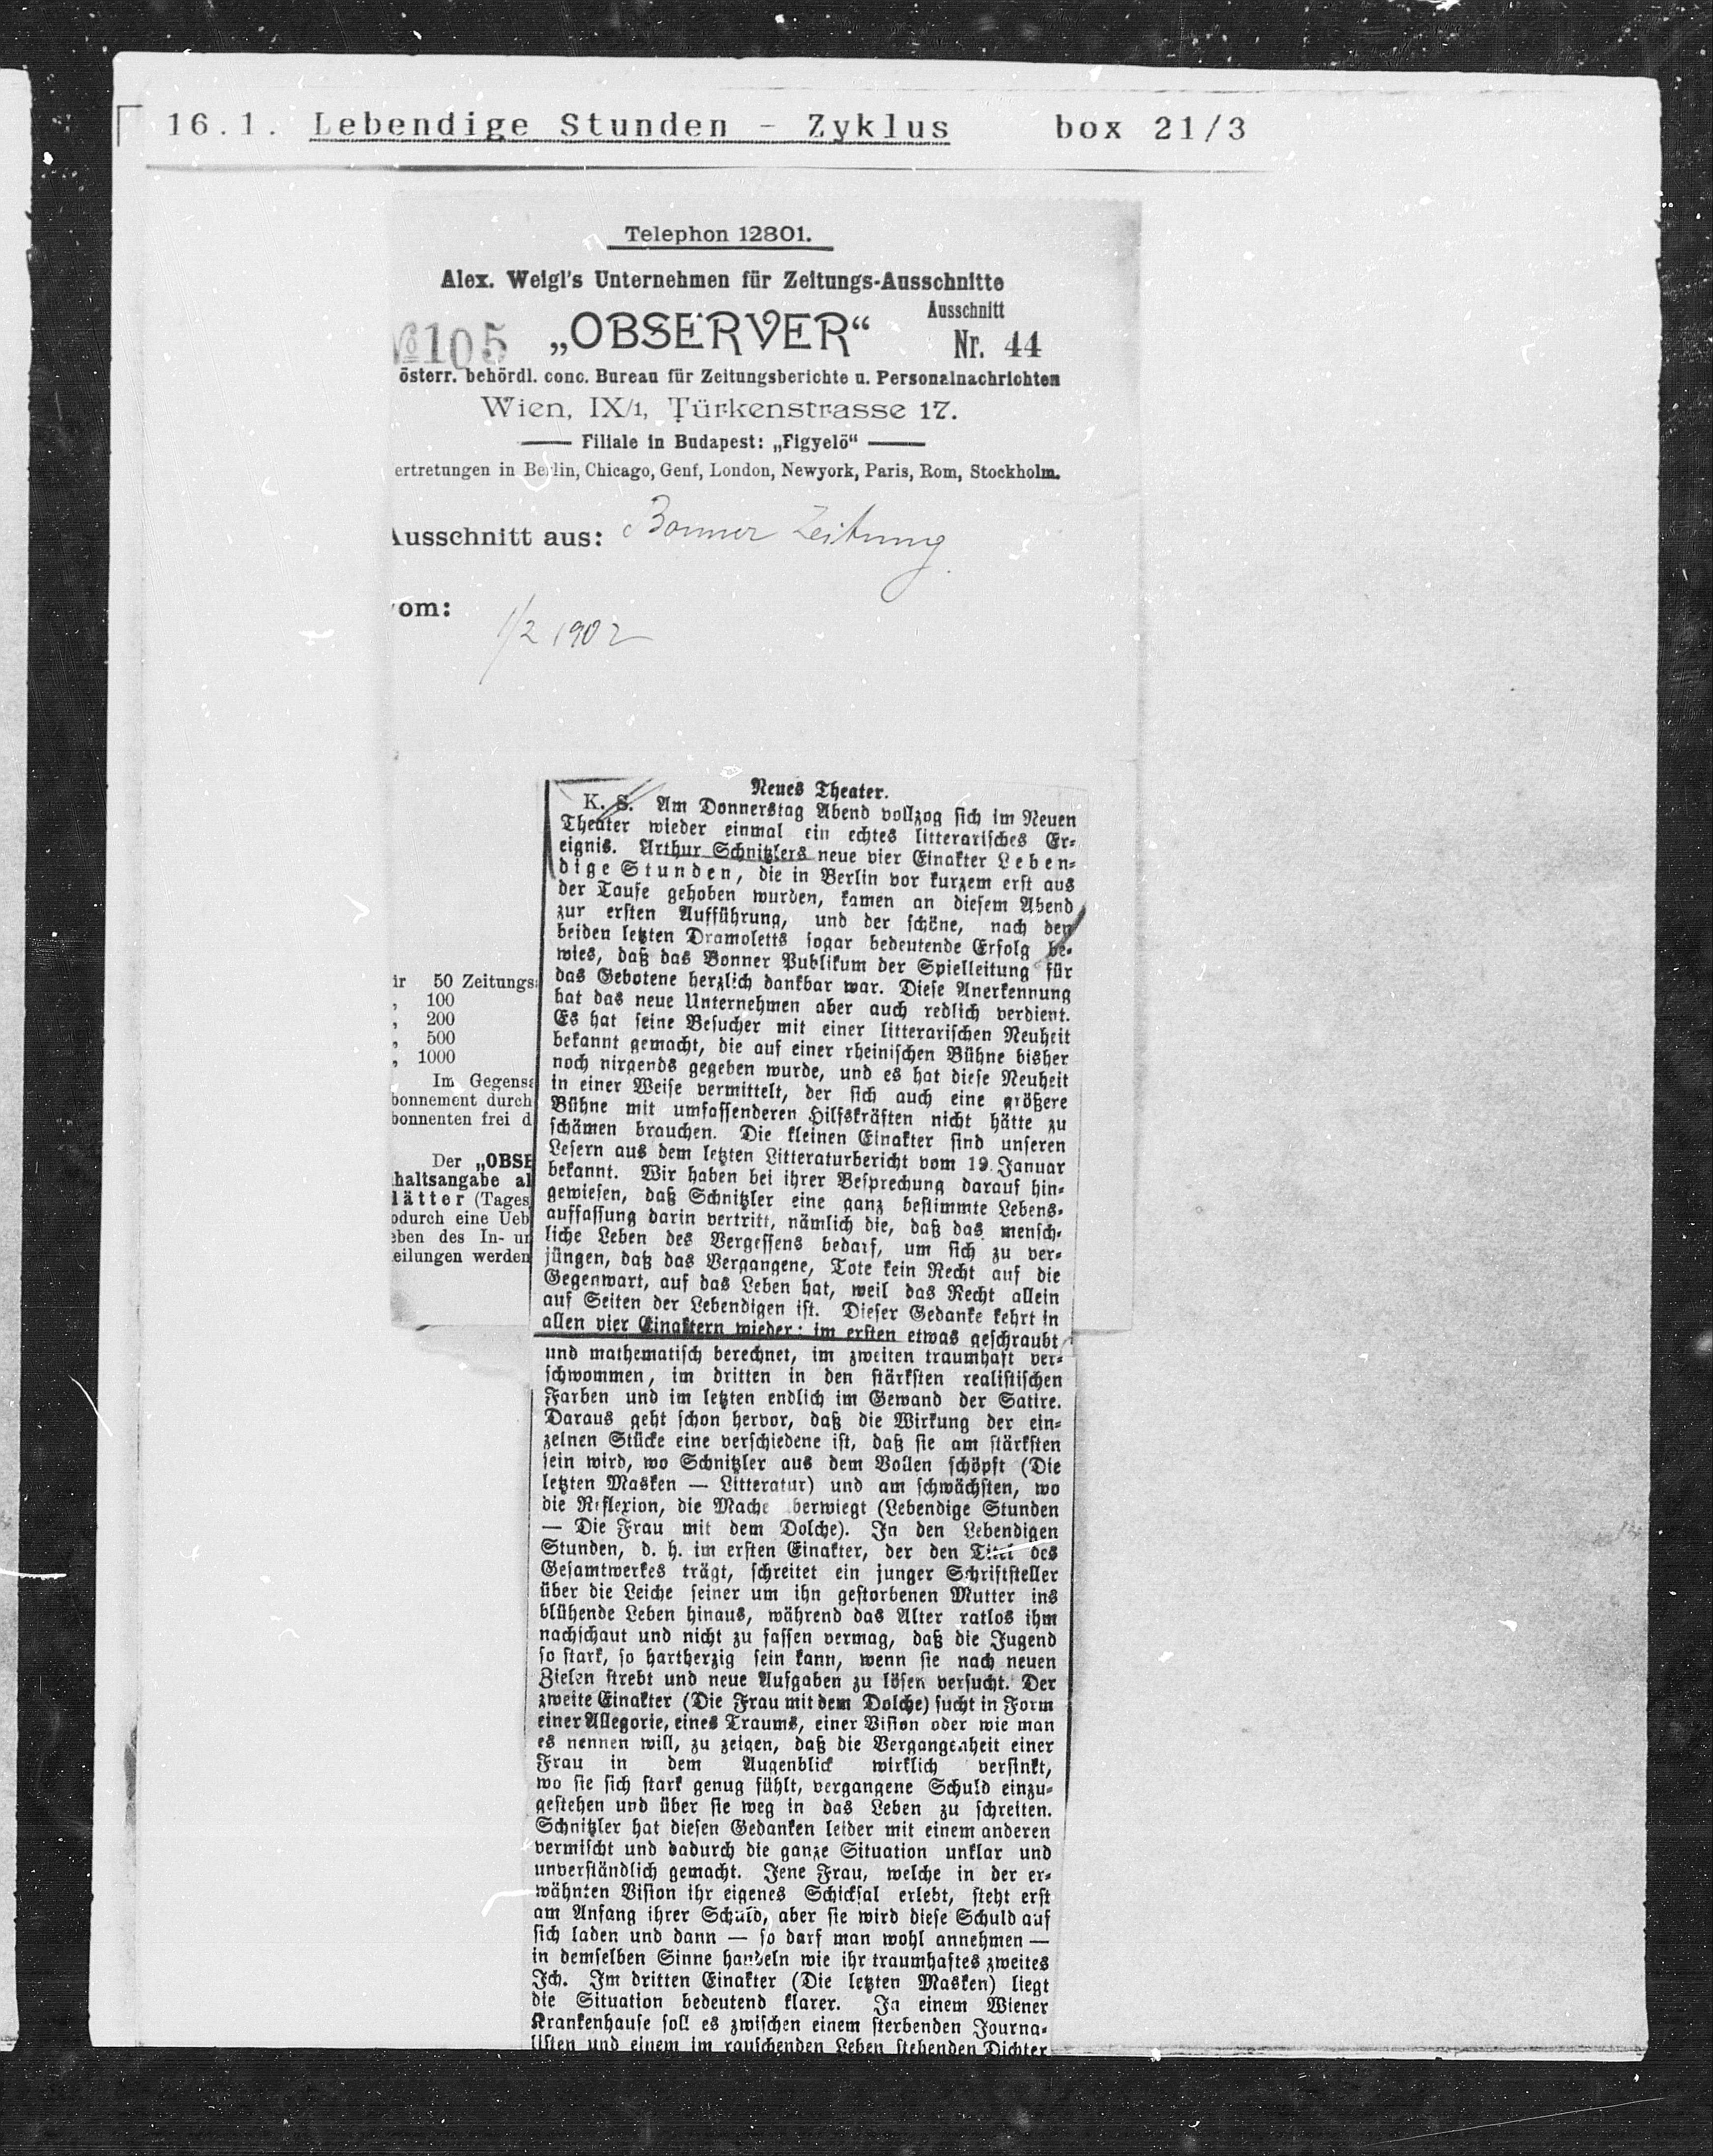 16.1. Lebendige Stunden - Zyklus box 21/3
Telephon 12801.
Alex. Weigl's Unternehmen für Zeitungs-Ausschnitte
Ausschnitt
№ 105 „OBSERVER“ Nr. 44
österr. behördl. conc. Bureau für Zeitungsberichte u. Personalnachrichten
Wien, IX/1, Türkenstrasse 17.
Filiale in Budapest: „Figyelö“
ertretungen in Berlin, Chicago, Genf, London, Newyork, Paris, Rom, Stockholm.
Ausschnitt aus: Bonner Zeitung
om:
1/2 1902
ir 50 Zeitungs
„ 100
„ 200
„ 500
„ 1000
Im Gegensa
bonnement durch
bonnenten frei d
Der „OBSE
haltsangabe al
lätter (Tages
odurch eine Ueb
eben des In- un
eilungen werden
Neues Theater.
K. S. Am Donnerstag Abend vollzog sich im Neuen
Theater wieder einmal ein echtes litterarisches Er-
eignis. Arthur Schnitzlers neue vier Einakter Leben-
dige Stunden, die in Berlin vor kurzem erst aus
der Taufe gehoben wurden, kamen an diesem Abend
zur ersten Aufführung, und der schöne, nach den
beiden letzten Dramoletts sogar bedeutende Erfolg be-
wies, daß das Bonner Publikum der Spielleitung für
das Gebotene herzlich dankbar war. Diese Anerkennung
hat das neue Unternehmen aber auch redlich verdient.
Es hat seine Besucher mit einer litterarischen Neuheit
bekannt gemacht, die auf einer rheinischen Bühne bisher
noch nirgends gegeben wurde, und es hat diese Neuheit
in einer Weise vermittelt, der sich auch eine größere
Bühne mit umfassenderen Hilfskräften nicht hätte zu
schämen brauchen. Die kleinen Einakter sind unseren
Lesern aus dem letzten Litteraturbericht vom 19. Januar
bekannt. Wir haben bei ihrer Besprechung darauf hin-
gewiesen, daß Schnitzler eine ganz bestimmte Lebens-
auffassung darin vertritt, nämlich die, daß das mensch-
liche Leben des Vergessens bedarf, um sich zu ver-
jüngen, daß das Vergangene, Tote kein Recht auf die
Gegenwart, auf das Leben hat, weil das Recht allein
auf Seiten der Lebendigen ist. Dieser Gedanke kehrt in
allen vier Einaktern wieder: im ersten etwas geschraubt
und mathematisch berechnet, im zweiten traumhaft ver-
schwommen, im dritten in den stärksten realistischen
Farben und im letzten endlich im Gewand der Satire.
Daraus geht schon hervor, daß die Wirkung der ein-
zelnen Stücke eine verschiedene ist, daß sie am stärksten
sein wird, wo Schnitzler aus dem Vollen schöpft (Die
letzten Masken — Litteratur) und am schwächsten, wo
die Reflexion, die Mache berwiegt (Lebendige Stunden
— Die Frau mit dem Dolche). In den Lebendigen
Stunden, d. h. im ersten Einakter, der den Titel des
Gesamtwerkes trägt, schreitet ein junger Schriftsteller
über die Leiche seiner um ihn gestorbenen Mutter ins
blühende Leben hinaus, während das Alter ratlos ihm
nachschaut und nicht zu fassen vermag, daß die Jugend
so stark, so hartherzig sein kann, wenn sie nach neuen
Zielen strebt und neue Aufgaben zu lösen versucht. Der
zweite Einakter (Die Frau mit dem Dolche) sucht in Form
einer Allegorie, eines Traums, einer Vision oder wie man
es nennen will, zu zeigen, daß die Vergangenheit einer
Frau in dem Augenblick wirklich versinkt,
wo sie sich stark genug fühlt, vergangene Schuld einzu-
gestehen und über sie weg in das Leben zu schreiten.
Schnitzler hat diesen Gedanken leider mit einem anderen
vermischt und dadurch die ganze Situation unklar und
unverständlich gemacht. Jene Frau, welche in der er-
wähnten Vision ihr eigenes Schicksal erlebt, steht erst
am Anfang ihrer Schuld, aber sie wird diese Schuld auf
sich laden und dann — so darf man wohl annehmen —
in demselben Sinne handeln wie ihr traumhaftes zweites
Ich. Im dritten Einakter (Die letzten Masken) liegt
die Situation bedeutend klarer. In einem Wiener
Krankenhause soll es zwischen einem sterbenden Journa-
listen und einem im rauschenden Leben stehenden Dichter